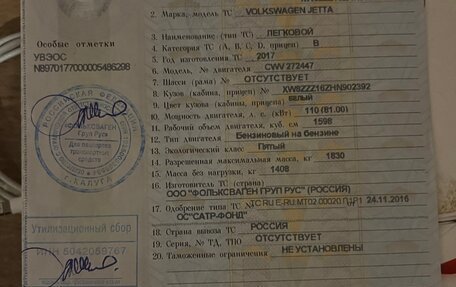 2. Марка, модель ТС VOLKSWAGEN JETTA
3. Наименование (тип ТС) ЛЕГКОВОЙ
Особые отметки
4. Категория ТС (A, B, C, D, прицеп) B
УВЭОС
5. Год изготовления ТС 2017
N8970177000005486298
6. Модель, № двигателя CWV 272447
7. Шасси (рама) № ОТСУТСТВУЕТ
8. Кузов (кабина, прицеп) № XW8ZZZ16ZHN902392
9. Цвет кузова (кабины, прицепа) белый
10. Мощность двигателя, л. с. (кВт) 110 (81.00)
11. Рабочий объем двигателя, куб. см 1598
12. Тип двигателя Бензиновый на бензине
13. Экологический класс Пятый
14. Разрешенная максимальная масса, кг 1830
15. Масса без нагрузки, кг 1408
16. Изготовитель ТС (страна)
ООО "ФОЛЬКСВАГЕН ГРУП РУС" (РОССИЯ)
17. Одобрение типа ТС № ТС RU E-RU.MT02.00020.П1Р1 24.11.2016
ОС "САТР-ФОНД"
18. Страна вывоза ТС РОССИЯ
19. Серия, № ТД, ТПО ОТСУТСТВУЕТ
20. Таможенные ограничения НЕ УСТАНОВЛЕНЫ
РОССИЙСКАЯ ФЕДЕРАЦИЯ
"ФОЛЬКСВАГЕН
Груп Рус"
Для паспортов
транспортных
средств
г. КАЛУГА
Утилизационный сбор
ИНН 5042059767